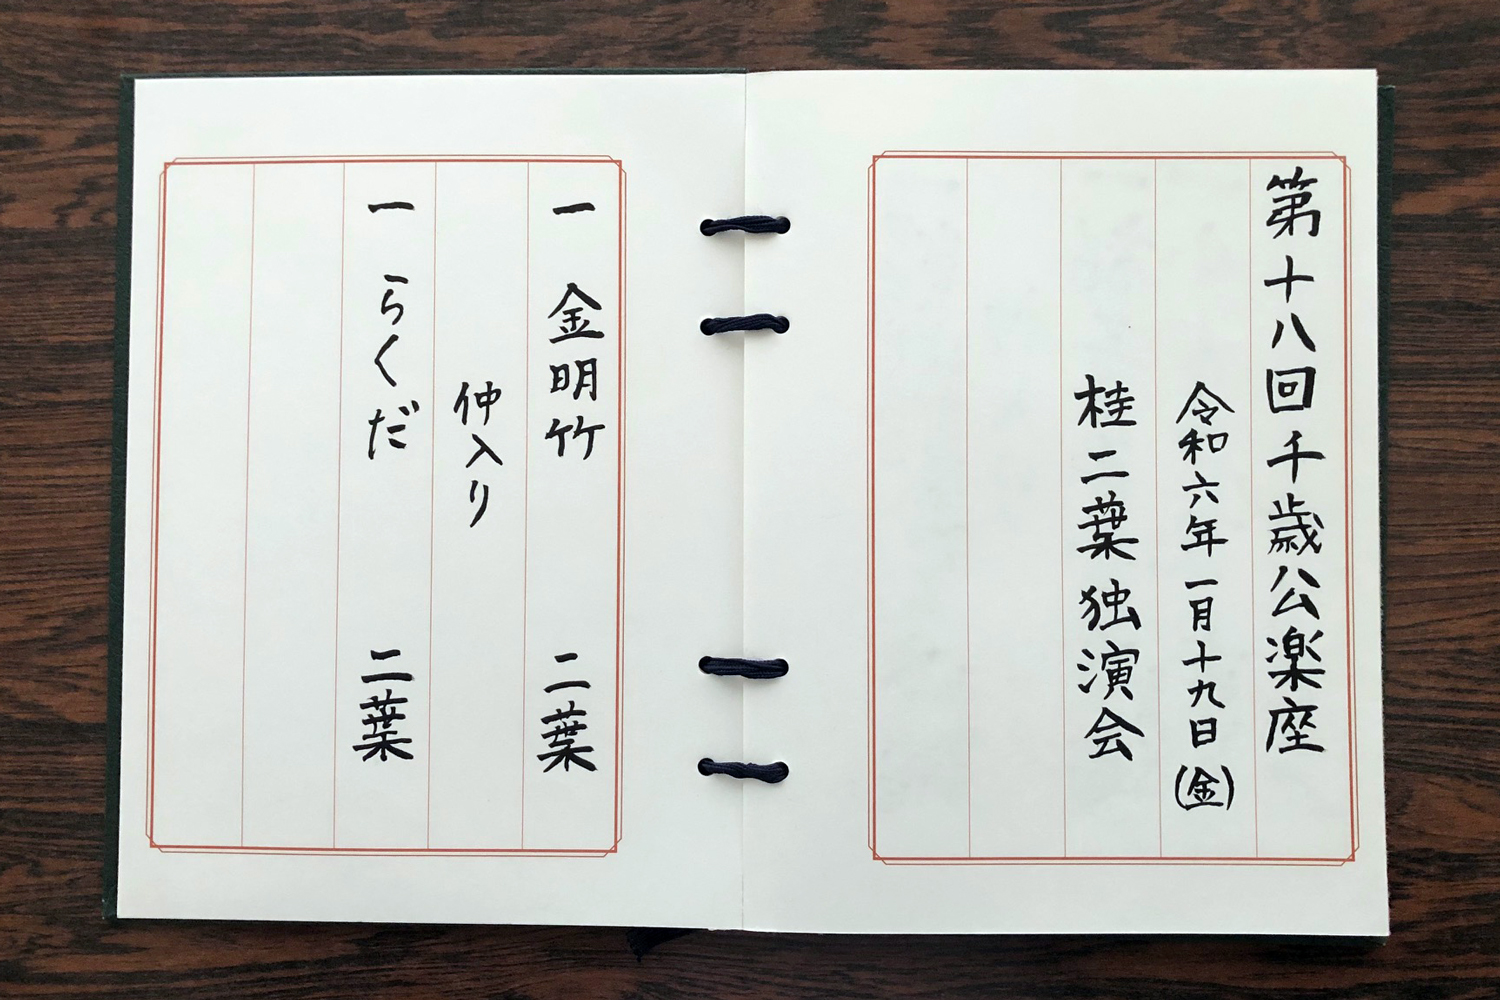 第十八回千歳公楽座
令和六年一月十九日(金)
桂二葉独演会
一 金明竹 二葉
仲入り
一 らくだ 二葉